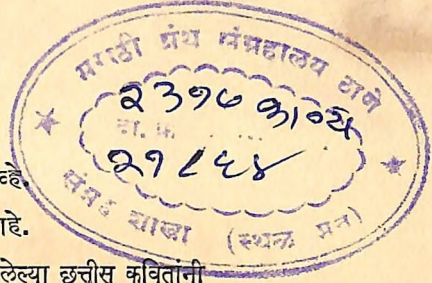 मराठी ग्रंथ संग्रहालय ठाणे
२३१७ काव्य
दा. क्र.
२१८६४
शाखा (स्थळ प्रत)
व्हे.
ाहे.
लेल्या छत्तीस कवितांनी